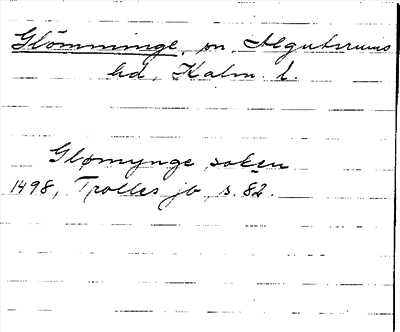 Glömminge, sn, Algutsrums
hd, Kalm. l.
Glømynge soken
1498, Trolles jb s. 82.